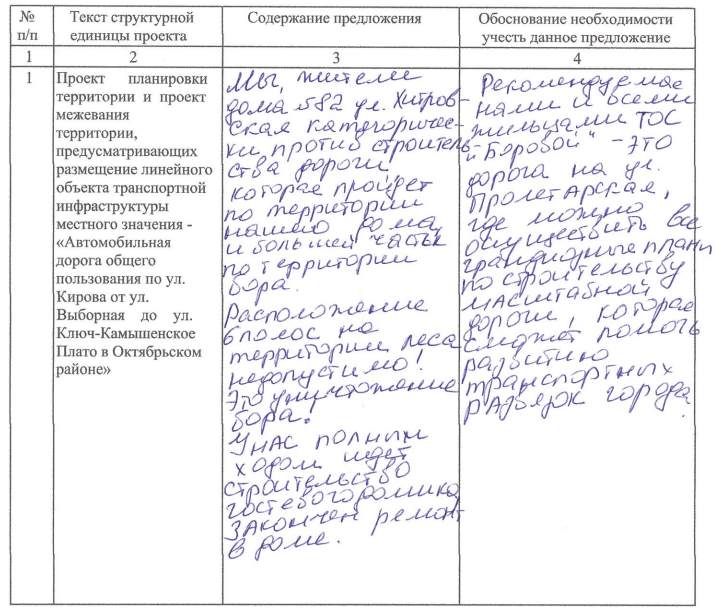 № п/п
Текст структурной единицы проекта
Содержание предложения
Обоснование необходимости учесть данное предложение
1
2
3
4
1
Проект планировки
территории и проект
межевания
территории,
предусматривающих
размещение линейного
объекта транспортной
инфраструктуры
местного значения -
«Автомобильная
дорога общего
пользования по ул.
Кирова от ул.
Выборная до ул.
Ключ-Камышенское
Плато в Октябрьском
районе»
Мы, жители
дома №82 ул. Хитров-
ская категоричес-
ки против строитель-
ства дороги,
которая пройдет
по территории
нашего дома
и большей частью
по территории
бора.
Расположение
6 полос на
территории леса
недопустимо!
Это уничтожение
бора.
У нас полным
ходом идет
строительство
гостевого домика,
закончен ремонт
в доме.
Рекомендуемая
нами и всеми
жильцами ТОС
"Боровой" - это
дорога на ул.
Пролетарская,
где можно
осуществить все
грандиозные планы
по строительству
масштабной
дороги, которая
сможет помочь
развитию
транспортных
развязок города.